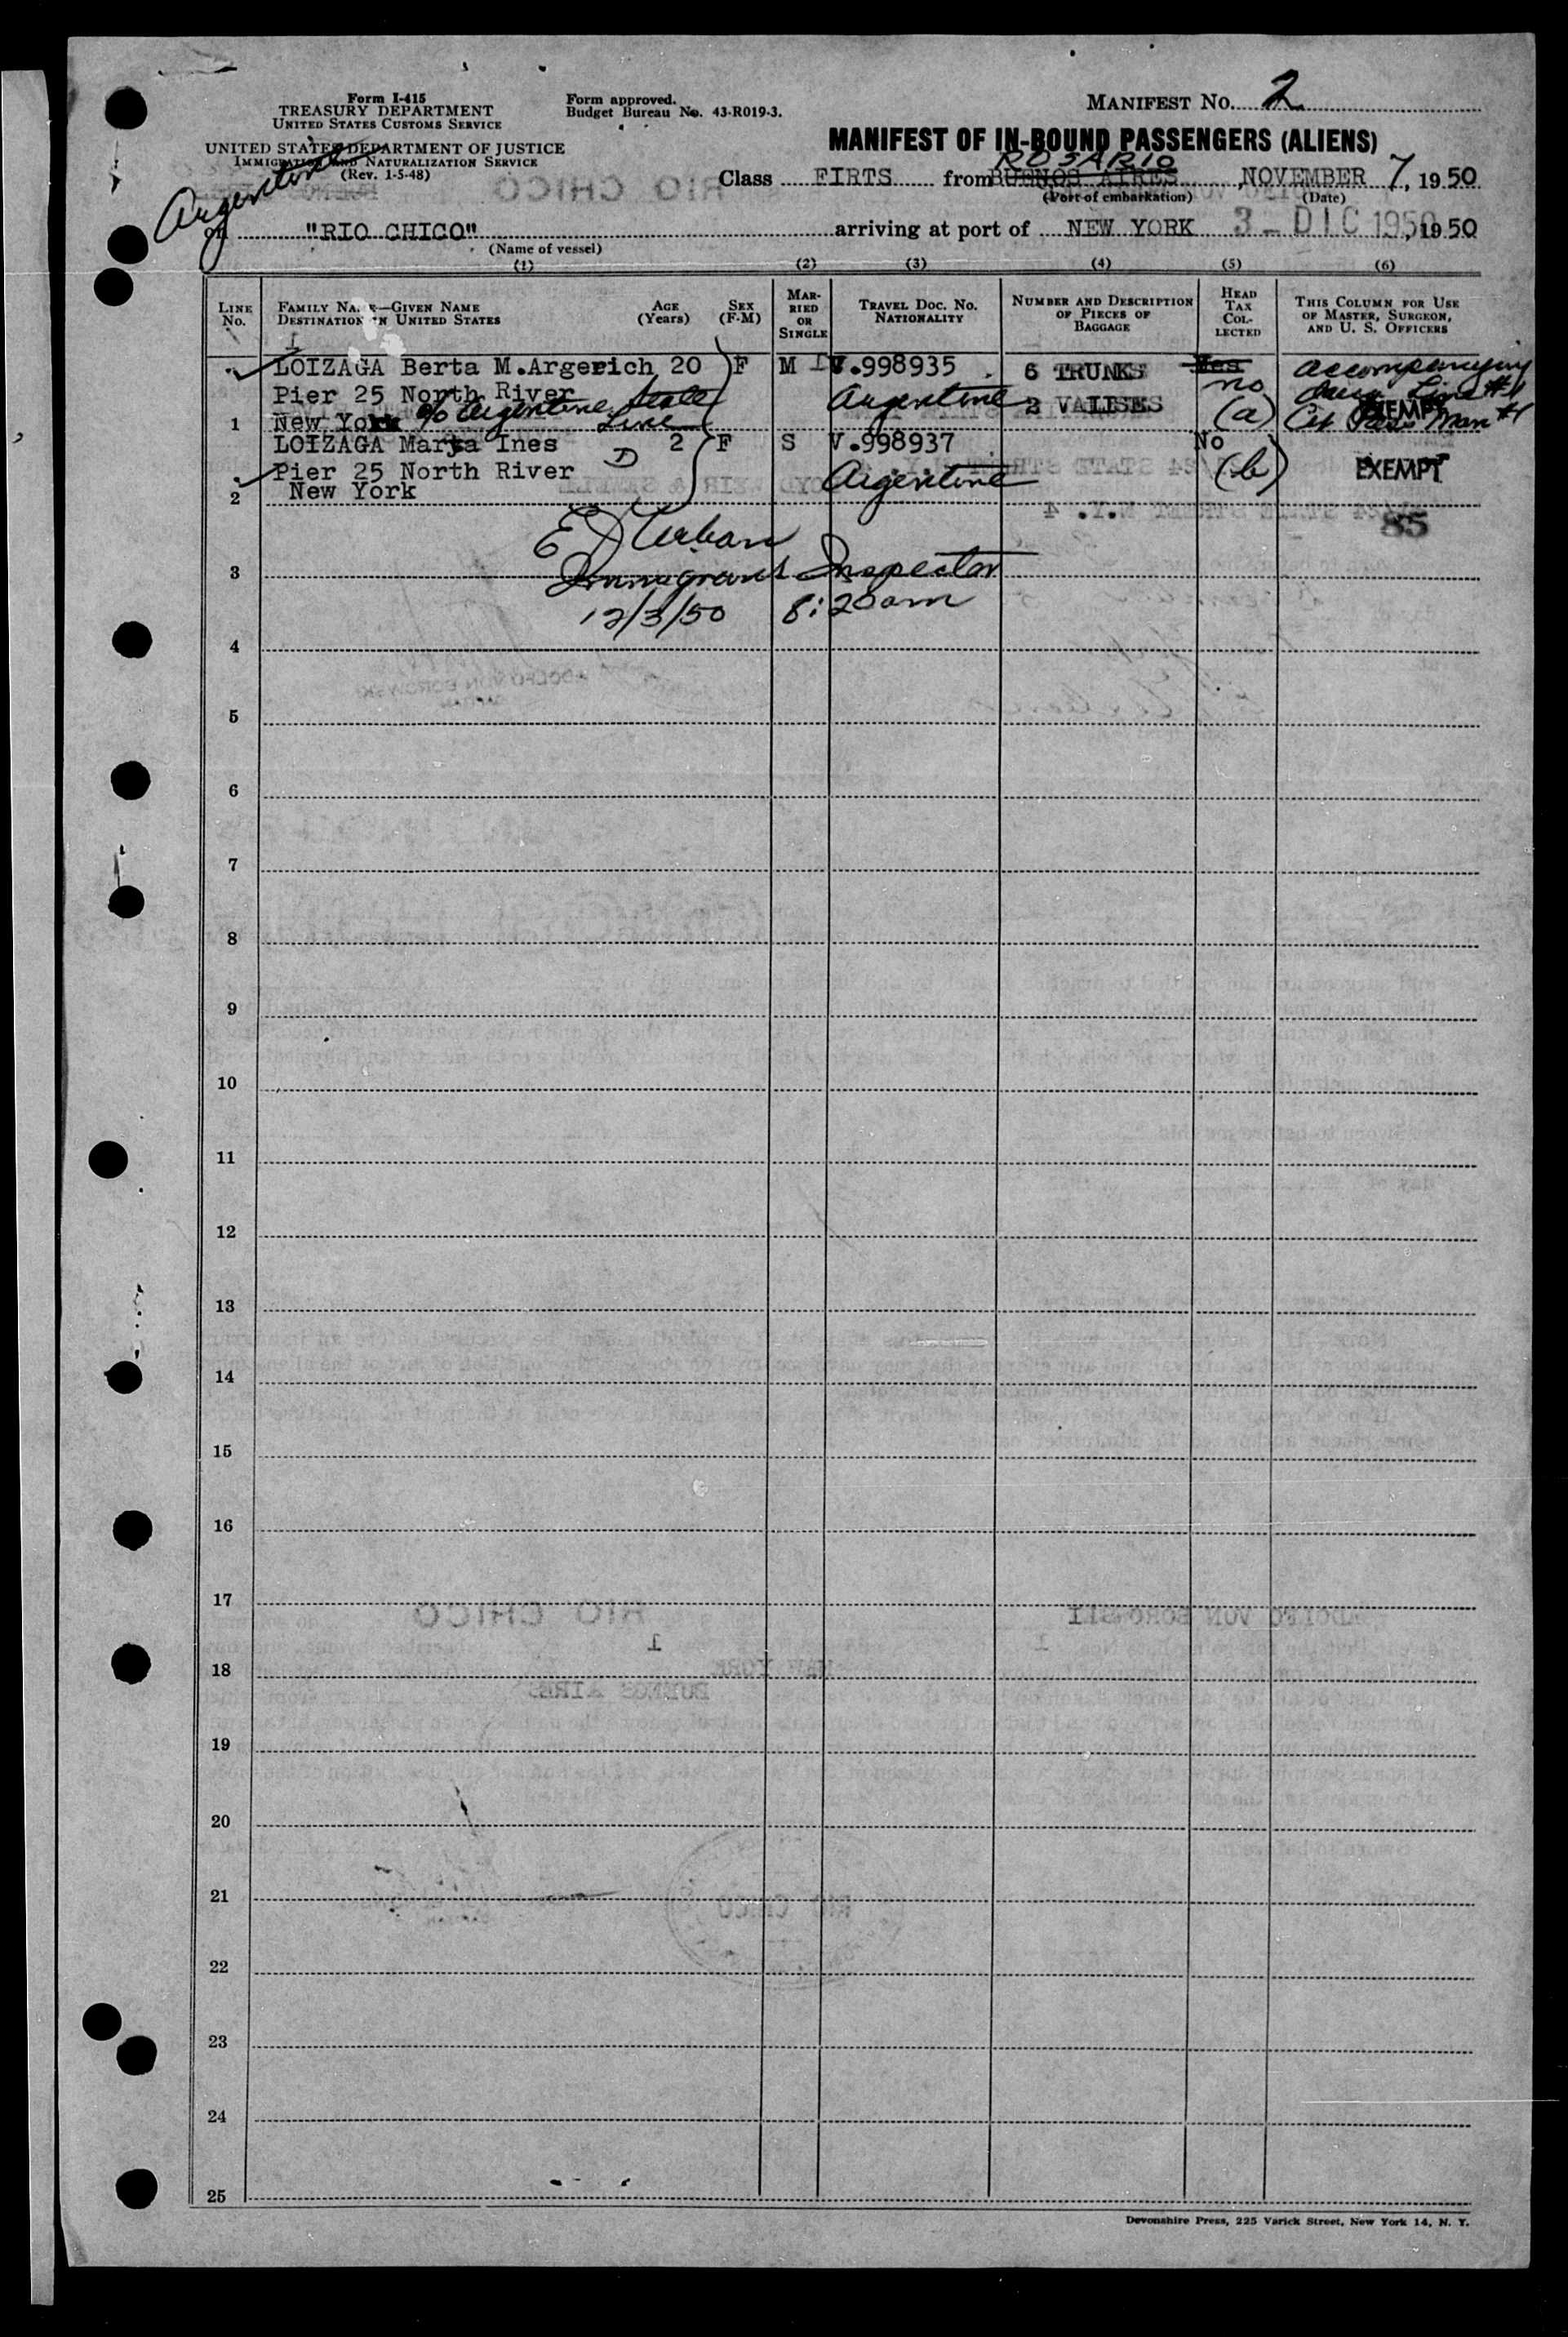 Form I-415
TREASURY DEPARTMENT
UNITED STATES CUSTOMS SERVICE
UNITED STATES DEPARTMENT OF JUSTICE
IMMIGRATION AND NATURALIZATION SERVICE
(Rev. 1-5-48)
Form approved.
Budget Bureau No. 43-R019-3.
MANIFEST No. 2
MANIFEST OF IN-BOUND PASSENGERS (ALIENS)
ROSARIO
Class FIRTS from BUENOS AIRES, NOVEMBER 7, 1950
(Port of embarkation) (Date)
Argentine
on "RIO CHICO" arriving at port of NEW YORK 3 - DIC 1950, 1950
(Name of vessel)
(1) (2) (3) (4) (5) (6)
LINE No.
FAMILY NAME—GIVEN NAME
DESTINATION IN UNITED STATES
AGE (Years)
SEX (F-M)
MARRIED OR SINGLE
TRAVEL DOC. NO. NATIONALITY
NUMBER AND DESCRIPTION OF PIECES OF BAGGAGE
HEAD TAX COLLECTED
THIS COLUMN FOR USE OF MASTER, SURGEON, AND U. S. OFFICERS
LOIZAGA Berta M.Argerich 20 F M V.998935 6 TRUNKS Yes accompanying
Pier 25 North River Argentine 2 VALISES no Line #1
1 New York % Argentine State Line (a) EXEMPT Man #1
LOIZAGA Marta Ines 2 F S V.998937 No
Pier 25 North River D Argentine (b) EXEMPT
2 New York
85
E D Urban
3 Immigrant Inspector
12/3/50 8:20am
4
5
6
7
8
9
10
11
12
13
14
15
16
17
18
19
20
21
22
23
24
25
Devonshire Press, 225 Varick Street, New York 14, N. Y.